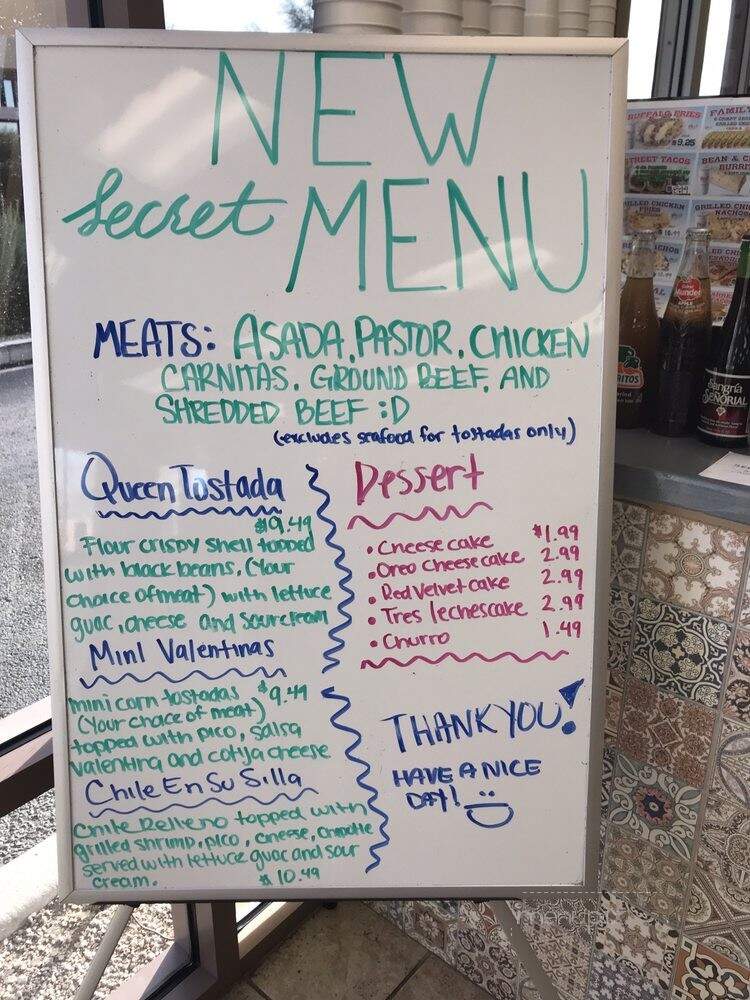 NEW
Secret MENU
MEATS: ASADA, PASTOR, CHICKEN
CARNITAS, GROUND BEEF, AND
SHREDDED BEEF :D
(excludes seafood for tostadas only)
Queen Tostada
Flour crispy shell topped
with black beans, (Your
choice of meat) with lettuce
guac, cheese and sour cream
Mini Valentinas
mini corn tostadas $9.49
(Your choice of meat)
topped with pico, salsa
valentina and cotija cheese
Chile En Su Silla
Chile Relleno topped with
grilled shrimp, pico, cheese, chipotle
served with lettuce guac and sour
cream.
$10.49
Dessert
• Cheese cake $1.99
• Oreo cheese cake 2.99
• Red Velvet cake 2.99
• Tres leches cake 2.99
• Churro 1.49
THANK YOU!
HAVE A NICE
DAY!
BUFFALO FRIES
$9.25
STREET TACOS
BEAN & C
BURRI
GRILLED CHICKEN
FRIES
GRILLED CHI
NACHO
Mundet
Sangría
SEÑORIAL